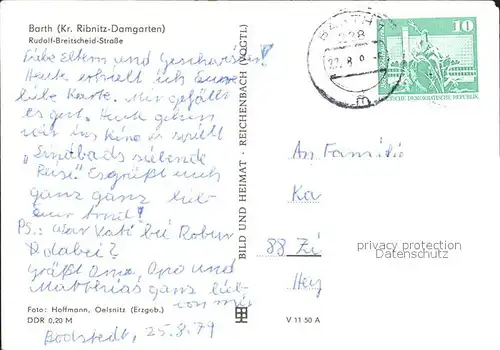 Barth (Kr. Ribnitz-Damgarten)
Rudolf-Breitscheid-Straße
Liebe Eltern und Geschwister!
Heute erhielt ich Eure
liebe Karte. Mir gefällt
es gut. Heute gehen
wir ins Kino es spielt
"Sindbads siebente
Reise". Es grüßt euch
ganz ganz lieb
eur
Ps.: War Vati bei Robur
dabei?
Grüßt Oma, Opa und
Matthias ganz lieb
von mir
Foto: Hoffmann, Oelsnitz (Erzgeb.)
DDR 0,20 M
Bodstedt, 25.8.79
BILD UND HEIMAT · REICHENBACH (VOGTL)
V 11 50 A
BARTH
238
10
DEUTSCHE DEMOKRATISCHE REPUBLIK
An Familie
Ka
88 Zi
privacy protection
Datenschutz